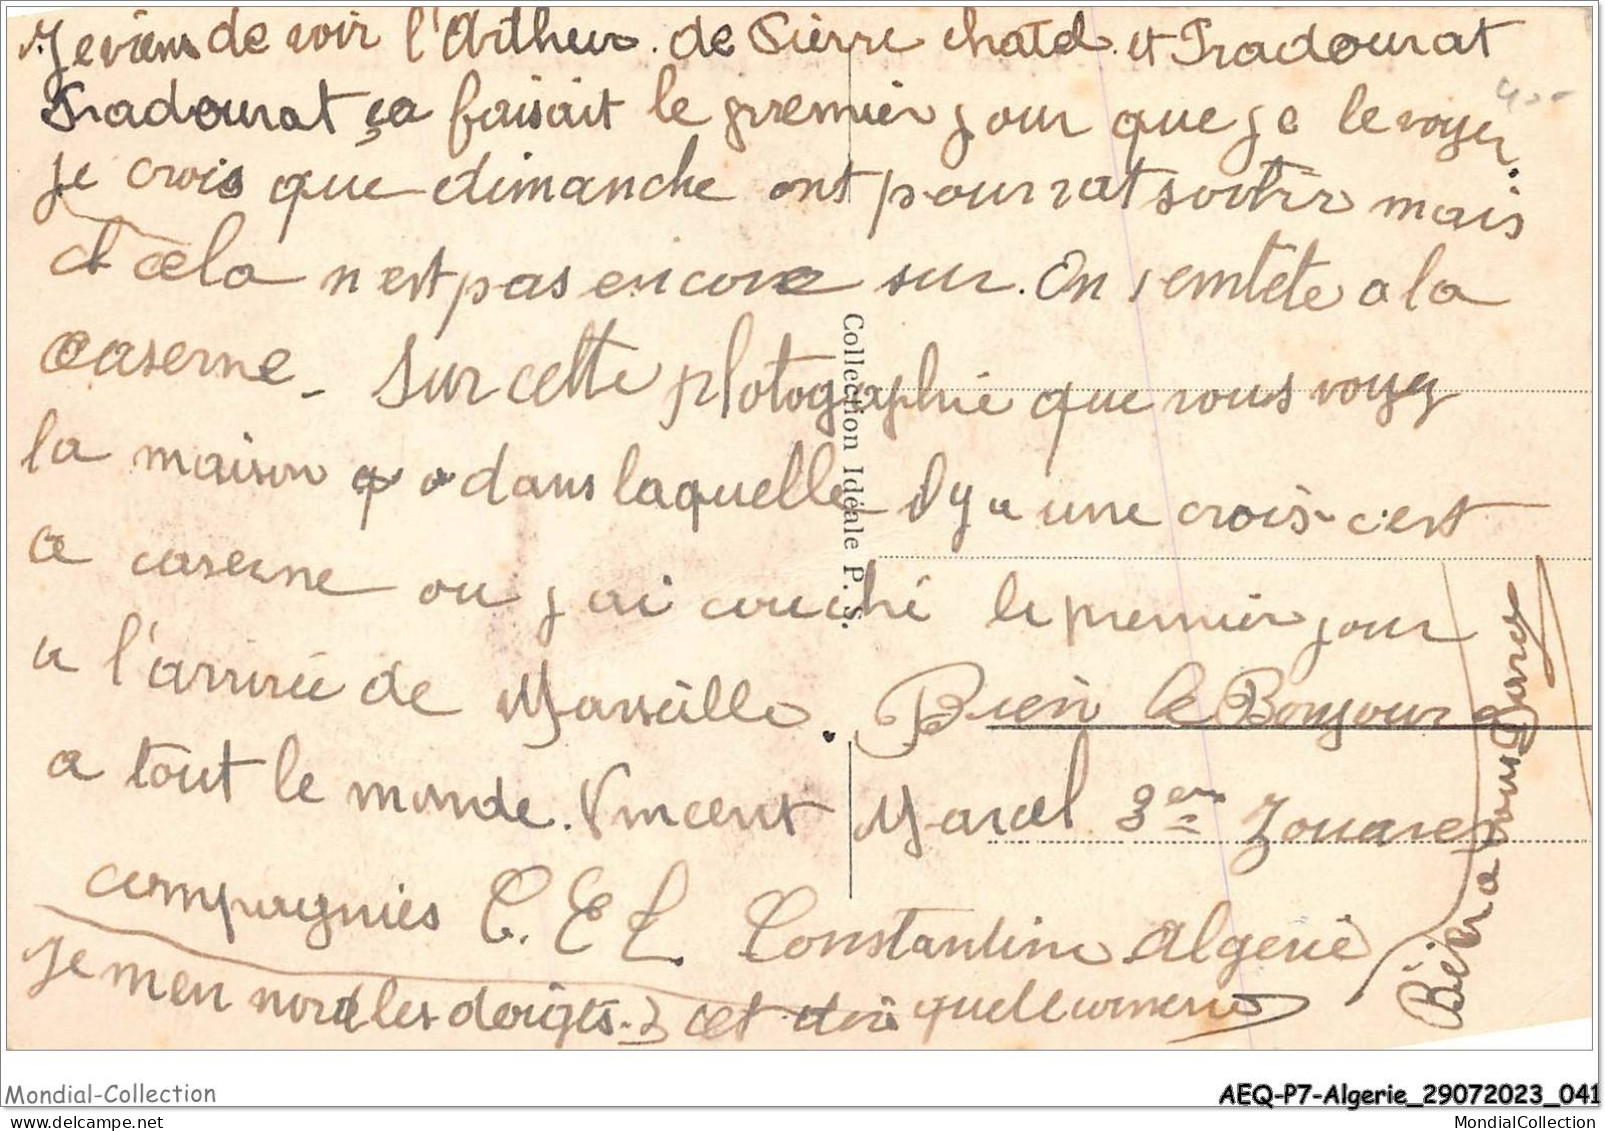 Je viens de voir l'Arthur. de Pierre chatel. et Pradourat
Pradourat ça faisait le premier jour que je le voyer.
je crois que dimanche ont pourrat sortir mais
et cela n'est pas encore sur. On s'emtete a la
caserne - Sur cette photographie que vous voyez
la maison dans laquelle il y a une crois - c'est
a caserne ou j'ai couché le premier jour
a l'arrivée de Marseille. Bien le Bonjour
a tout le monde. Vincent Marcel 3em Zouaves
compagnies C. E L. Constantine Algerie
Je men mord les doigts. cet
Bien a vous
Collection Idéale P. S.
400
Mondial-Collection
AEQ-P7-Algerie_29072023_041
mondialcollection
MondialCollection